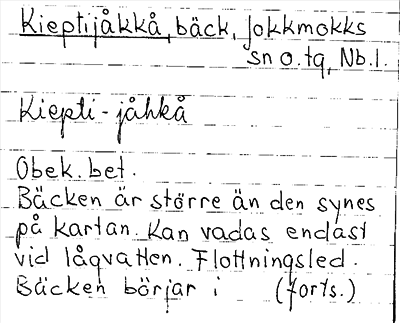 Kieptijåkkå, bäck, Jokkmokks
sn o. tg, Nb.l.
Kiepti-jåhkå
Obek. bet.
Bäcken är större än den synes
på kartan. Kan vadas endast
vid lågvatten. Flottningsled.
Bäcken börjar i (forts.)